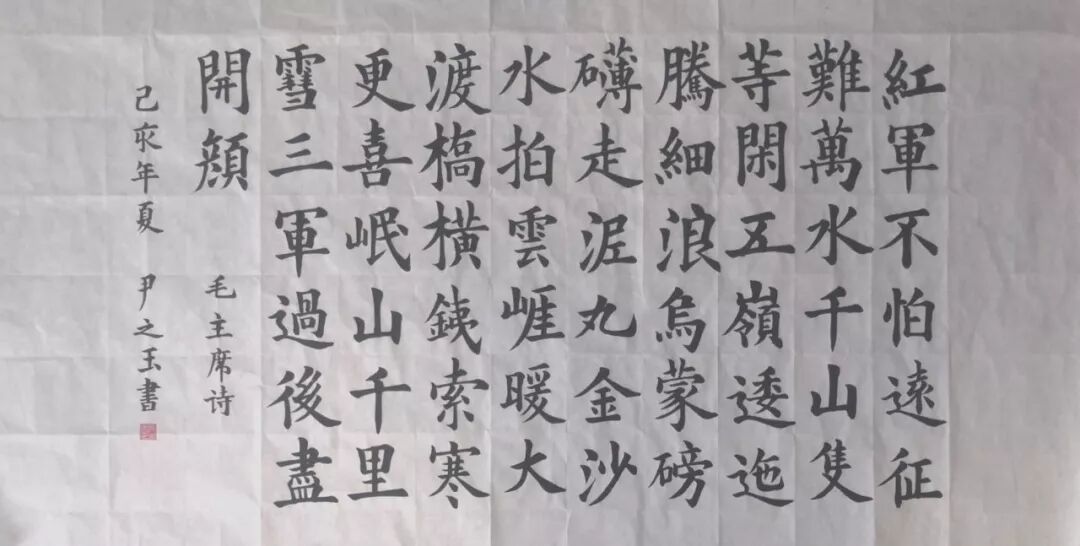 紅軍不怕遠征
難萬水千山隻
等閑五嶺逶迤
騰細浪烏蒙磅
礴走泥丸金沙
水拍雲崕暖大
渡槗橫銕索寒
更喜岷山千里
雪三軍過後盡
開顔
毛主席诗
己亥年夏 尹之玉書